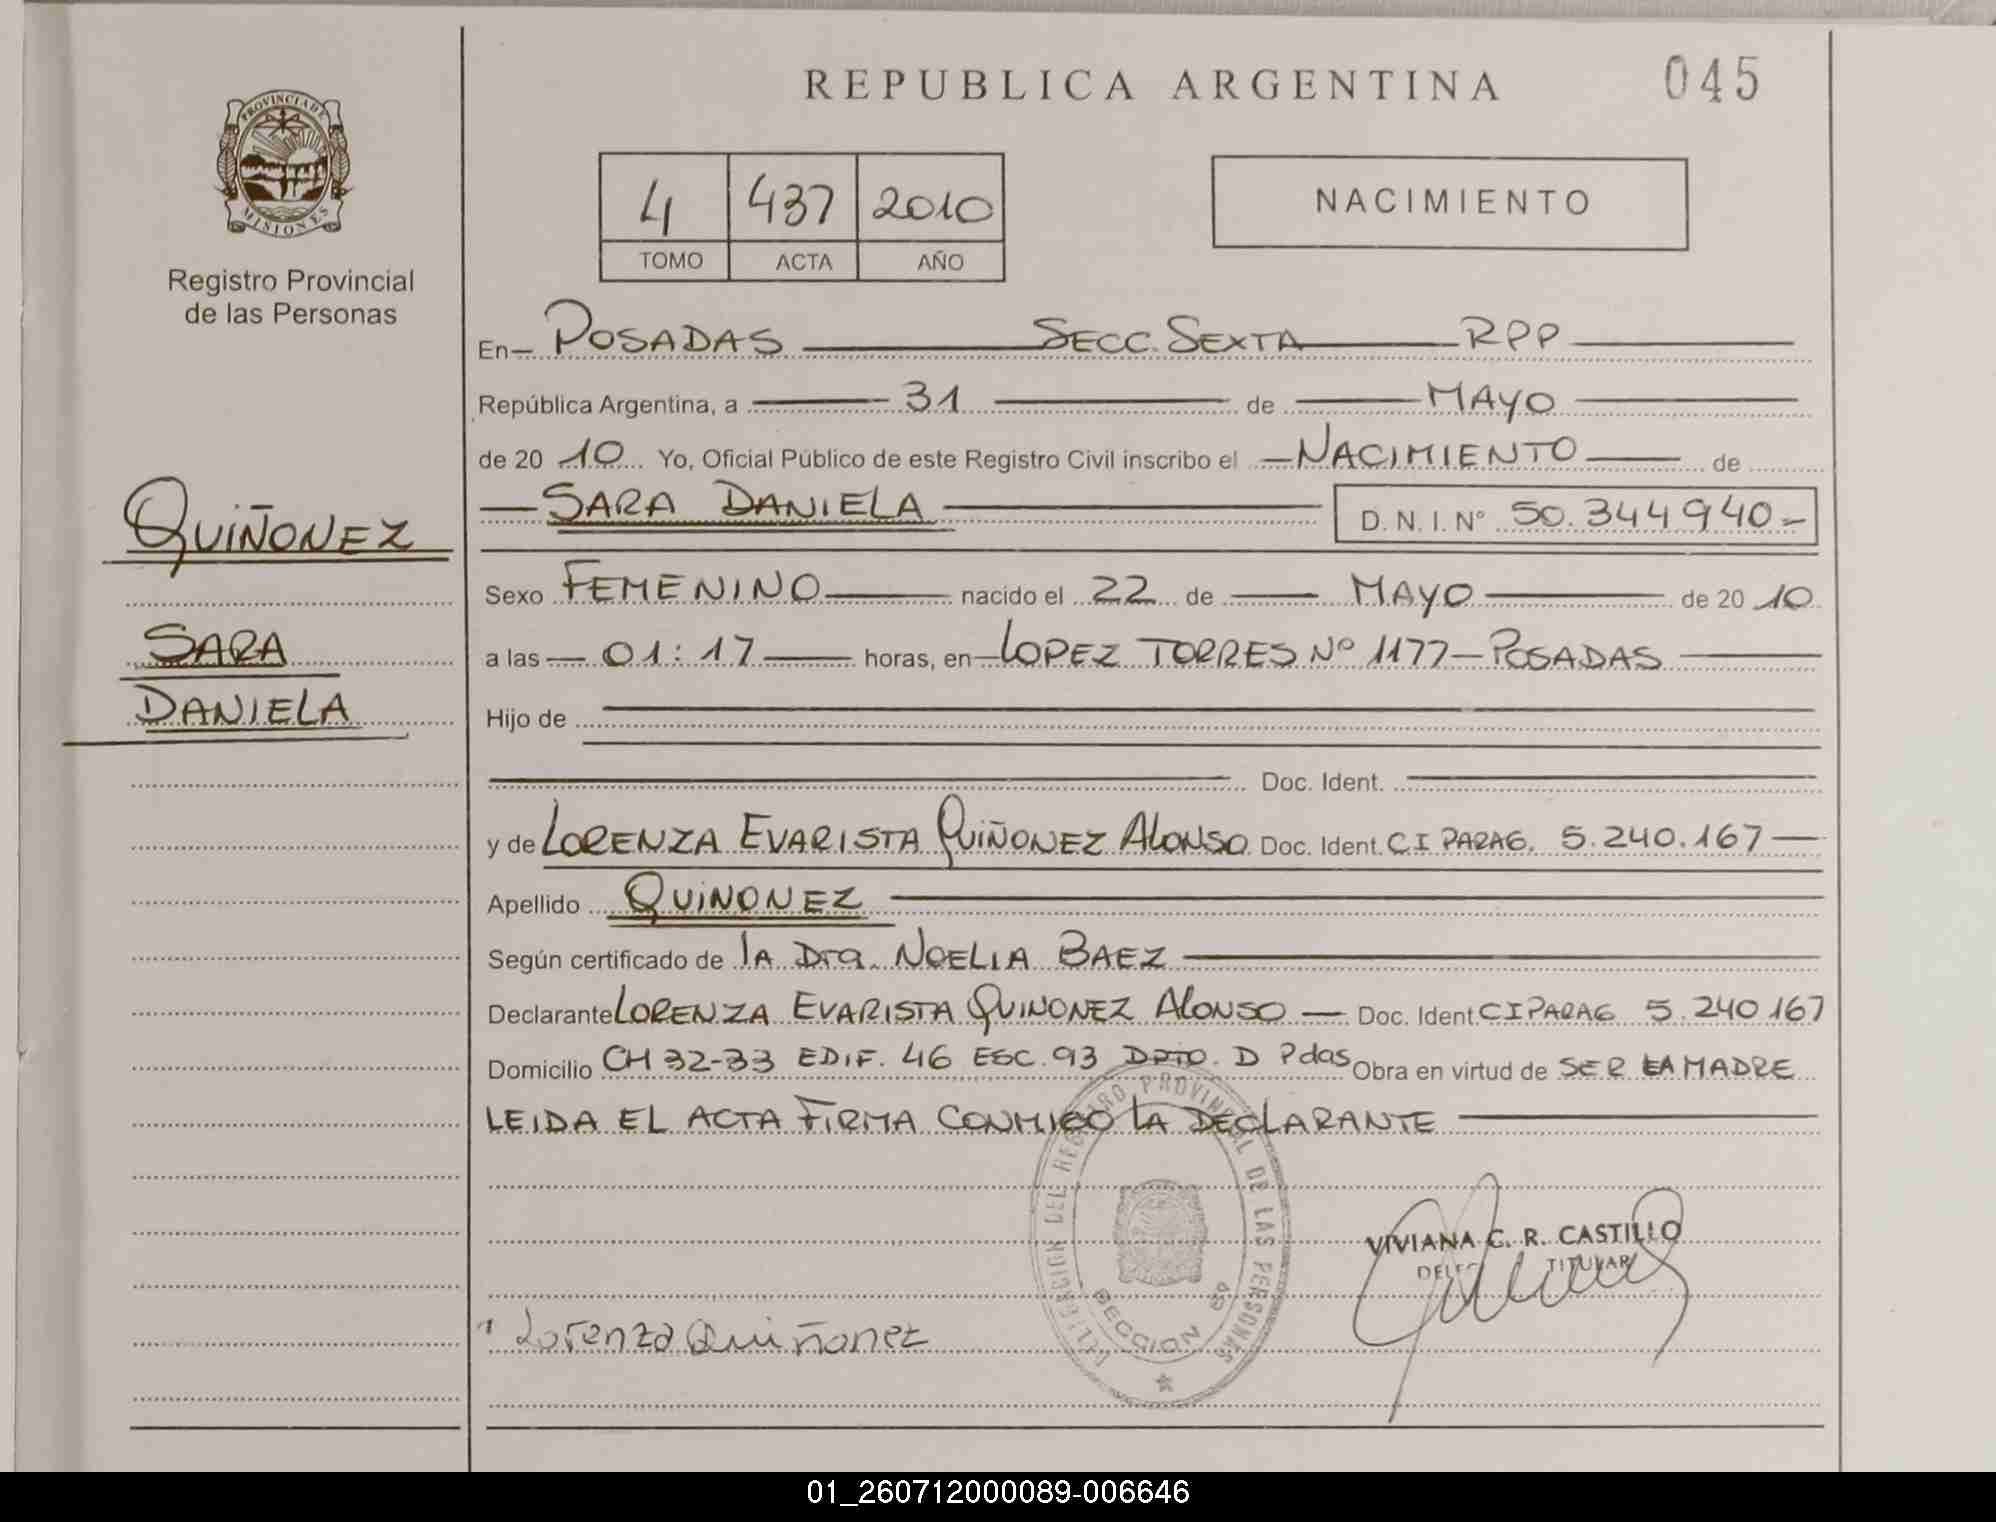 REPUBLICA ARGENTINA
045
PROVINCIA DE
MISIONES
Registro Provincial
de las Personas
4 437 2010
TOMO ACTA AÑO
NACIMIENTO
QUIÑONEZ
SARA
DANIELA
En POSADAS SECC. SEXTA RPP
República Argentina, a 31 de MAYO
de 20 10 Yo, Oficial Público de este Registro Civil inscribo el NACIMIENTO de
SARA DANIELA D. N. I. Nº 50.344940
Sexo FEMENINO nacido el 22 de MAYO de 20 10
a las 01:17 horas, en LOPEZ TORRES Nº 1177 - POSADAS
Hijo de
Doc. Ident.
y de LORENZA EVARISTA QUIÑONEZ ALONSO Doc. Ident. C I PARAG. 5.240.167
Apellido QUINONEZ
Según certificado de LA Dra. NOELIA BAEZ
Declarante LORENZA EVARISTA QUINONEZ ALONSO Doc. Ident CI PARAG 5.240 167
Domicilio CH 32-33 EDIF. 46 ESC. 93 DPTO. D Pdas Obra en virtud de SER LA MADRE
LEIDA EL ACTA FIRMA CONMIGO LA DECLARANTE
DEL REGISTRO PROVINCIAL DE LAS PERSONAS
SECCION 6ª
VIVIANA C. R. CASTILLO
TITULAR
Lorenza Quiñonez
01_260712000089-006646